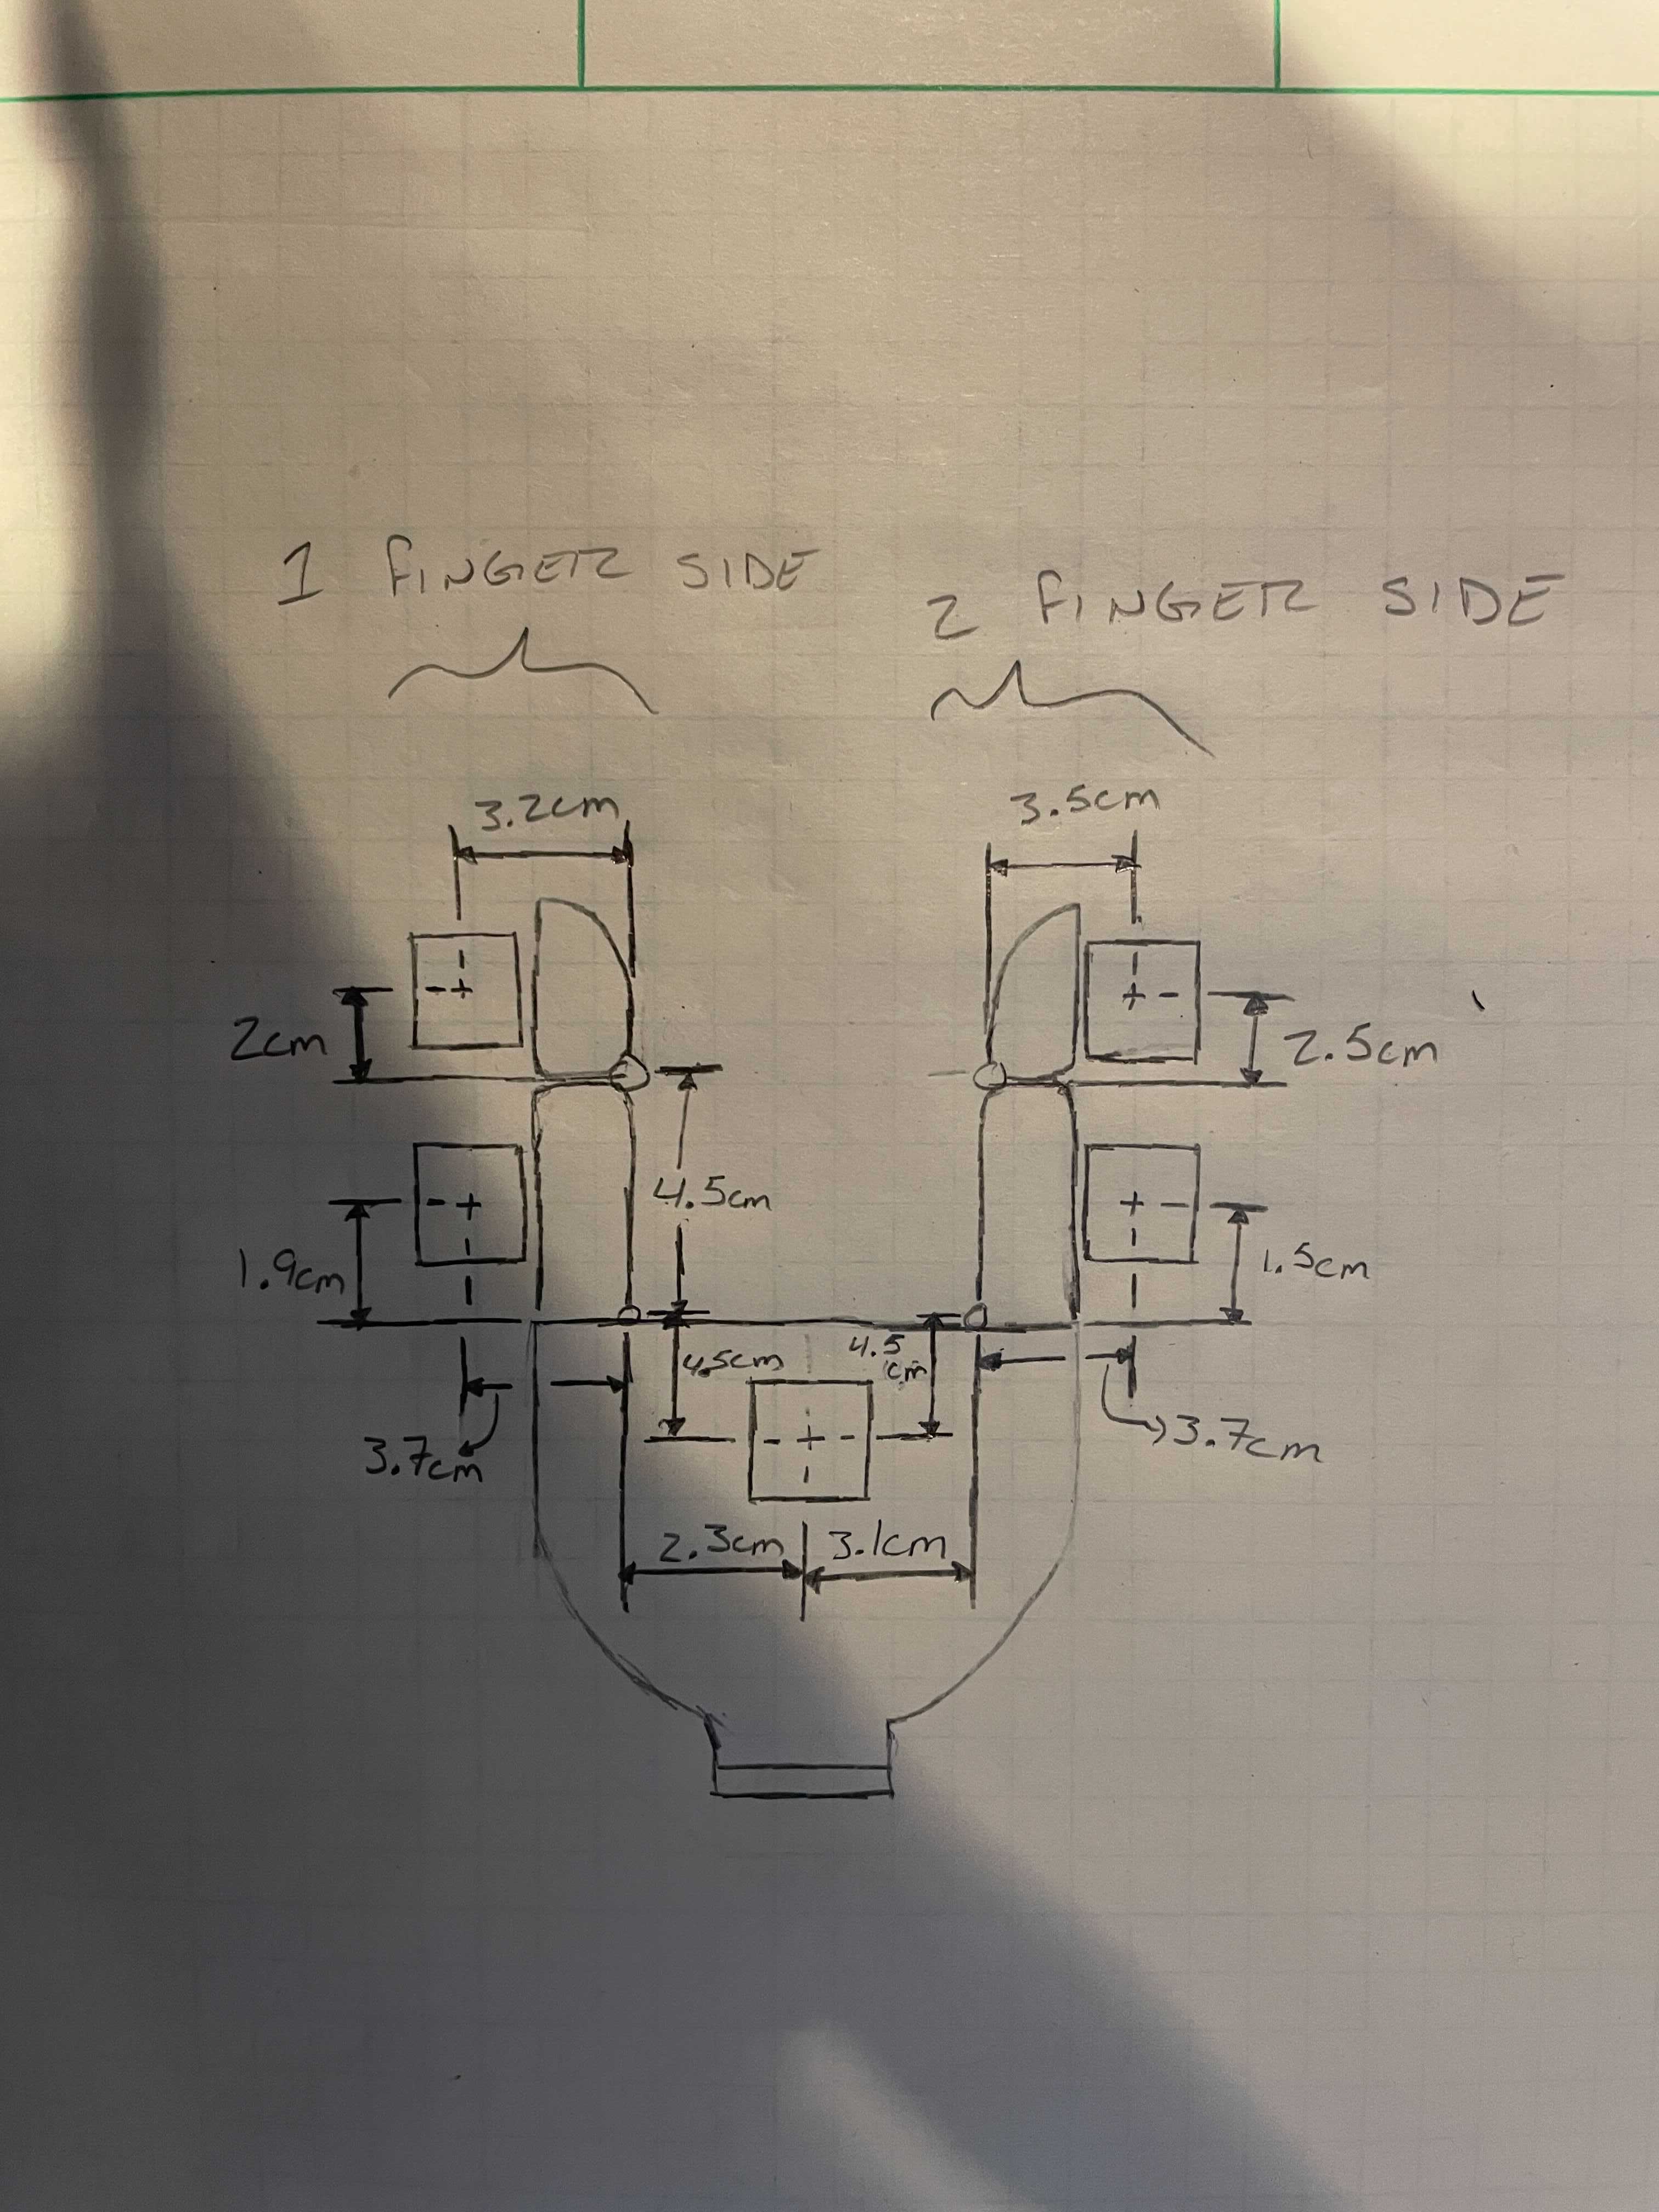 1 FINGER SIDE
2 FINGER SIDE
3.2cm
3.5cm
2cm
2.5cm
4.5cm
1.9cm
1.5cm
4.5cm
4.5
cm
3.7cm
3.7cm
2.3cm
3.1cm